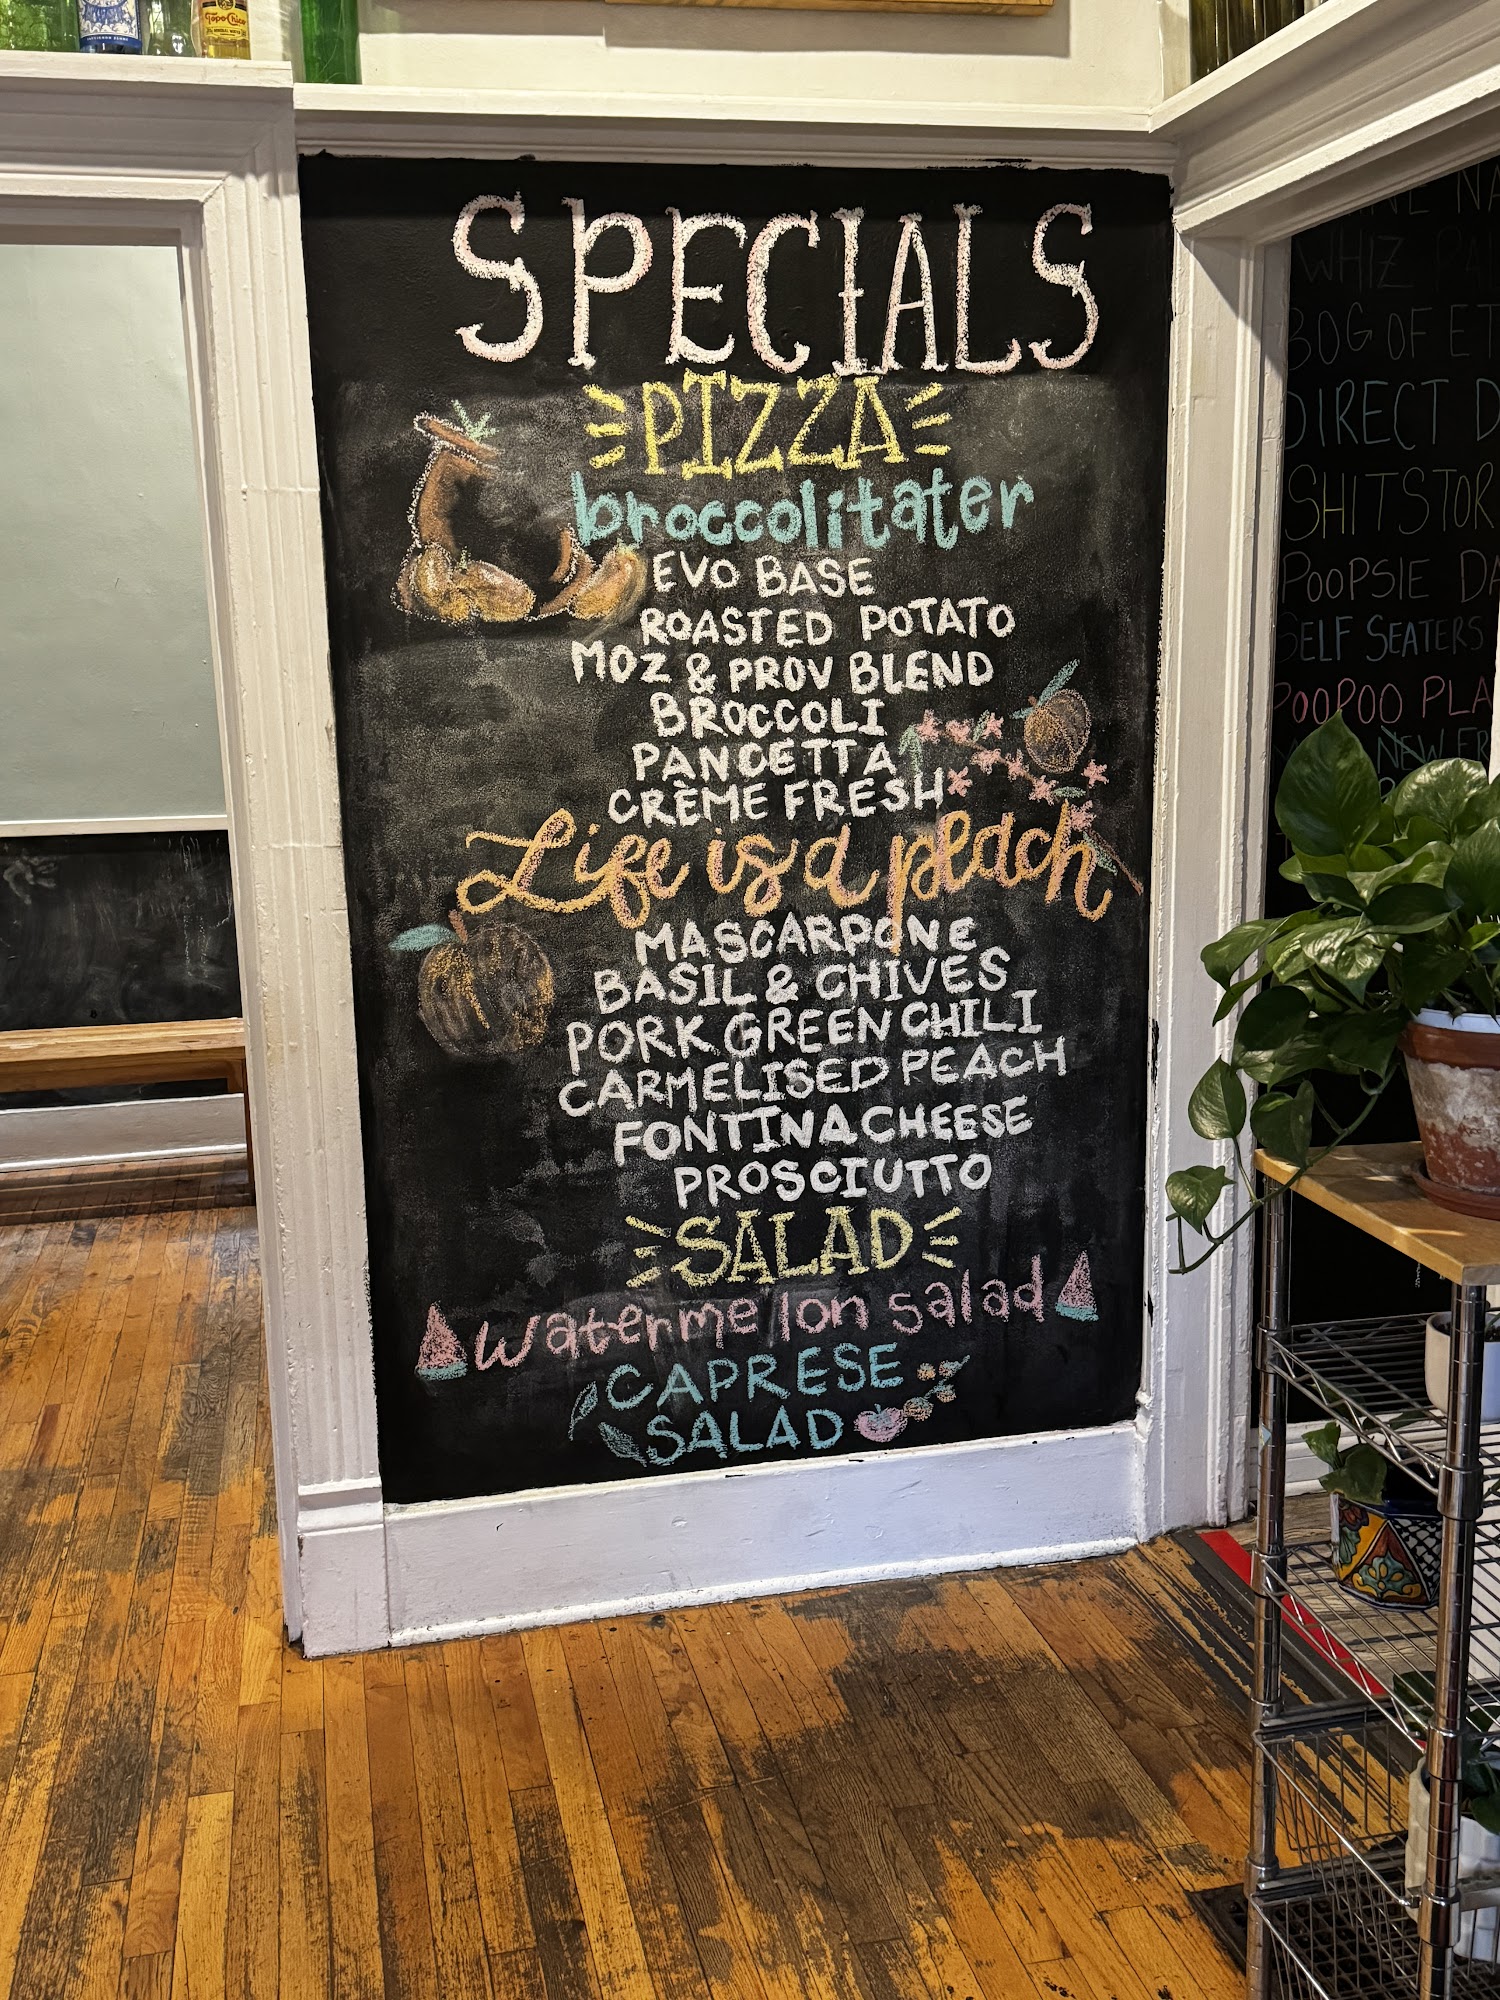 Topo Chico
SPECIALS
PIZZA
broccolitater
EVO BASE
ROASTED POTATO
MOZ & PROV BLEND
BROCCOLI
PANCETTA
CRÈME FRESH
Life is a peach
MASCARPONE
BASIL & CHIVES
PORK GREEN CHILI
CARMELISED PEACH
FONTINA CHEESE
PROSCIUTTO
SALAD
watermelon salad
CAPRESE
SALAD
WHIZ
BOG OF ET
DIRECT D
SHITSTOR
POOPSIE DA
SELF SEATERS
POOPOO PLA
NEW FR